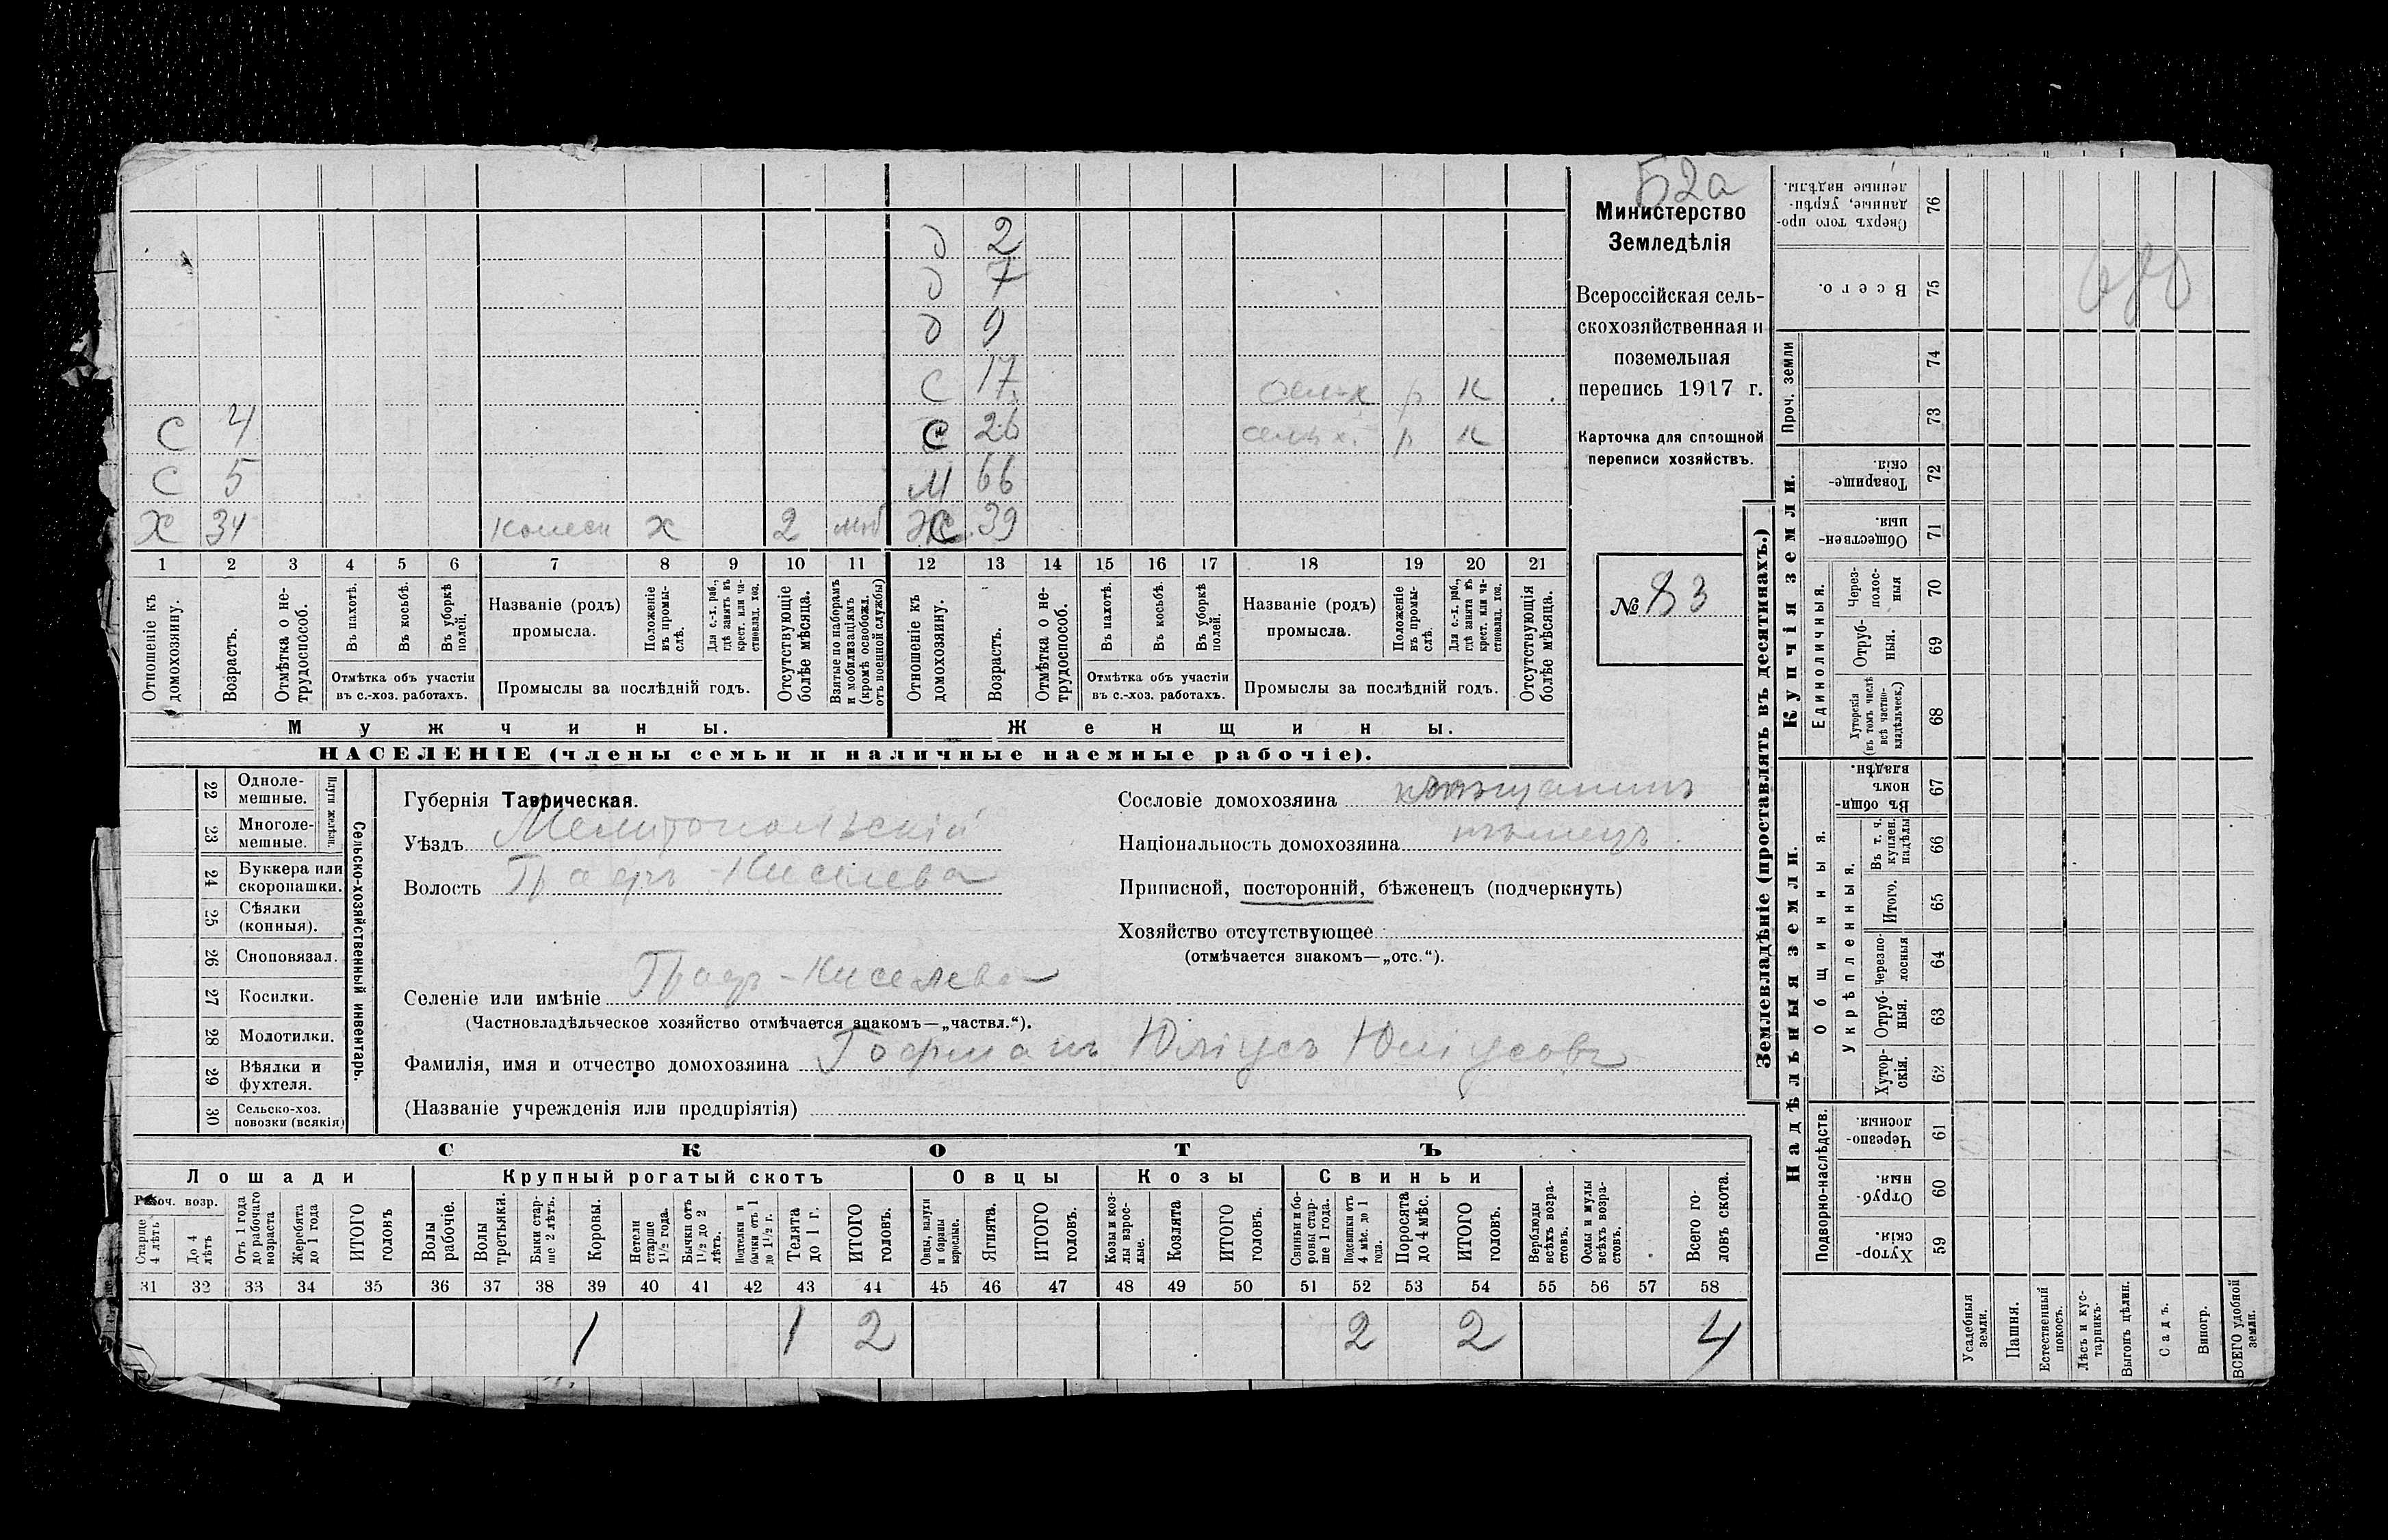 52а
Министерство
Земледѣлія
Всероссійская сель-
скохозяйственная и
поземельная
перепись 1917 г.
Карточка для сплошной
переписи хозяйствъ.
№ 83
д 2
д 7
д 9
с 17 сельх р к
С 4 с 26 сельх. р к
С 5 М 66
Х 34 колесн х 2 моб Ж 39
1 2 3 4 5 6 7 8 9 10 11 12 13 14 15 16 17 18 19 20 21
Отношеніе къ домохозяину.
Возрастъ.
Отмѣтка о не-трудоспособ.
Въ пахотѣ.
Въ косьбѣ.
Въ уборкѣ полей.
Отмѣтка объ участіи
въ с.-хоз. работахъ.
Названіе (родъ)
промысла.
Положеніе въ промы-слѣ.
Для с.-х. раб., гдѣ занятъ въ крест. или ча-стновлад. хоз.
Промыслы за послѣдній годъ.
Отсутствующіе болѣе мѣсяца.
Взятые по наборамъ и мобилизаціямъ (кромѣ освобожд. отъ военной службы)
Отношеніе къ домохозяину.
Возрастъ.
Отмѣтка о не-трудоспособ.
Въ пахотѣ.
Въ косьбѣ.
Въ уборкѣ полей.
Отмѣтка объ участіи
въ с.-хоз. работахъ.
Названіе (родъ)
промысла.
Положеніе въ промы-слѣ.
Для с.-х. раб., гдѣ занята въ крест. или ча-стновлад. хоз.
Промыслы за послѣдній годъ.
Отсутствующія болѣе мѣсяца.
Мужчины. Женщины.
НАСЕЛЕНІЕ (члены семьи и наличные наемные рабочіе).
22 Одноле-мешные.
23 Многоле-мешные.
Плуги желѣзн.
24 Буккера или скоропашки.
25 Сѣялки (конныя).
26 Сноповязал.
27 Косилки.
28 Молотилки.
29 Вѣялки и фухтеля.
30 Сельско-хоз. повозки (всякія)
Сельско-хозяйственный инвентарь.
Губернія Таврическая.
Уѣздъ Мелитопольскій
Волость Графъ-Киселева
Селеніе или имѣніе Графъ-Киселева
(Частновладѣльческое хозяйство отмѣчается знакомъ—„частвл.“).
Фамилія, имя и отчество домохозяина Гофманъ Юліусъ Юліусовъ
(Названіе учрежденія или предпріятія)
Сословіе домохозяина
Національность домохозяина нѣмецъ
Приписной, посторонній, бѣженецъ (подчеркнуть)
Хозяйство отсутствующее
(отмѣчается знакомъ—„отс.“).
СКОТЪ
Лошади Крупный рогатый скотъ Овцы Козы Свиньи
Рабоч. возр.
Старше 4 лѣтъ
До 4 лѣтъ
Отъ 1 года до рабочаго возраста
Жеребята до 1 года
ИТОГО головъ
Волы рабочіе.
Волы третьяки.
Быки стар-ше 2 лѣтъ.
Коровы.
Нетели старше 1½ года.
Бычки отъ 1½ до 2 лѣтъ.
Подтелки и бычки отъ 1 до 1½ г.
Телята до 1 г.
ИТОГО головъ.
Овцы, валухи и бараны взрослые.
Ягнята.
ИТОГО головъ.
Козы и коз-лы взрос-лые.
Козлята
ИТОГО головъ.
Свиньи и бо-ровы стар-ше 1 года.
Подсвинки отъ 4 мѣс. до 1 года.
Поросята до 4 мѣс.
ИТОГО головъ.
Верблюды всѣхъ возра-стовъ.
Ослы и мулы всѣхъ возра-стовъ.
Всего го-ловъ скота.
31 32 33 34 35 36 37 38 39 40 41 42 43 44 45 46 47 48 49 50 51 52 53 54 55 56 57 58
1 1 2 2 2 4
Землевладѣніе (проставлять въ десятинахъ.)
Надѣльныя земли. Купчія земли. Проч. земли
Подворно-наслѣдств.
Общинныя.
Укрѣпленныя.
Единоличныя.
76 Сверхъ того про-данные, укрѣп-ленные надѣлы.
75 Всего.
74
73
72 Товарище-скія.
71 Обществен-ныя.
70 Через-полос-ныя
69 Отруб-ныя.
68 Хуторскія (въ томъ числѣ всѣ частно-владѣльческ.)
67 Въ общи-номъ владѣн.
66 Въ т. ч. куплен. надѣлы
65 Итого.
64 черезпо-лосныя
63 Отруб-ныя.
62 Хутор-скія.
61 Черезпо-лосныя.
60 Отруб-ныя.
59 Хутор-скія.
Усадебныя земли.
Пашня.
Естественный покосъ.
Лѣсъ и кус-тарникъ.
Выгонъ цѣлин.
Садъ.
Виногр.
ВСЕГО удобной земли.